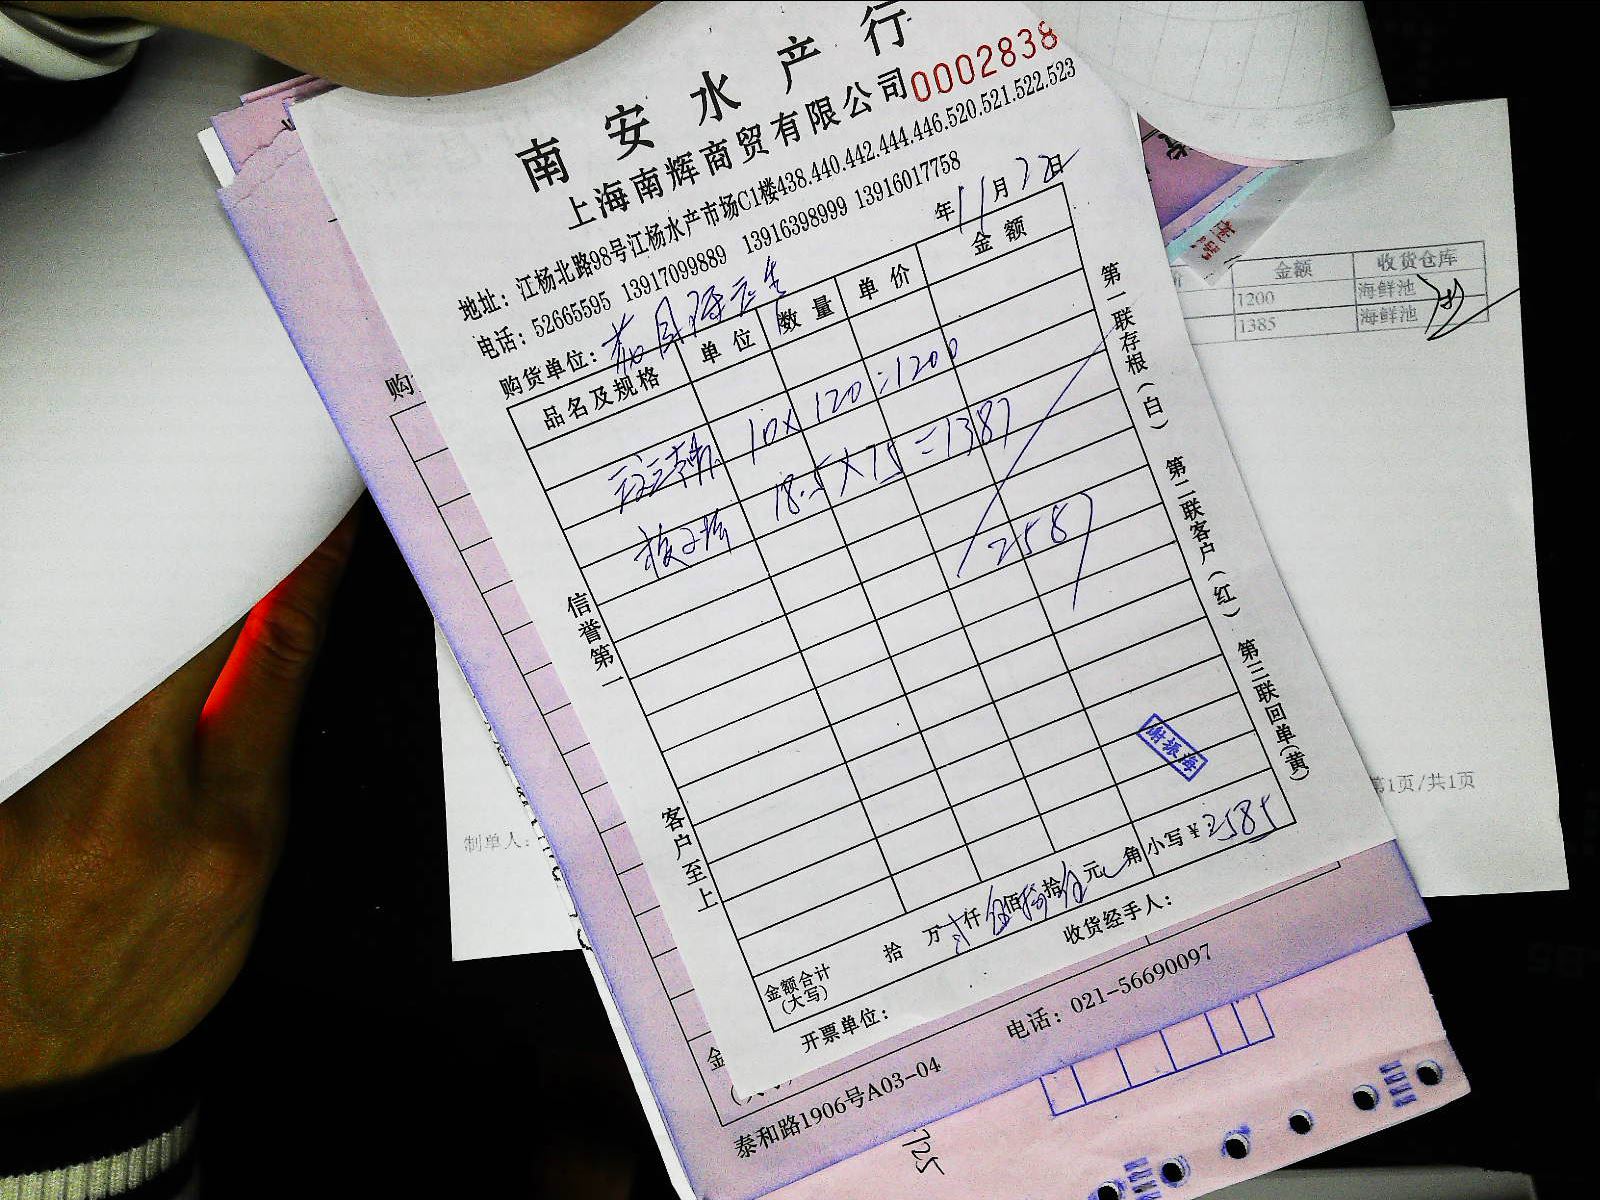 南安水产行
上海南辉商贸有限公司 0002838
地址：江杨北路98号江杨水产市场C1楼438.440.442.444.446.520.521.522.523
电话：52665595 13917099889 13916398999 13916017758
购货单位： 年 11 月 22 日
品名及规格 单位 数量 单价 金额
10×120=1200
18.5×75=1387
2587
信誉第一 客户至上
第一联存根（白） 第二联客户（红） 第三联回单（黄）
谢振海
金额合计（大写） 拾 万 仟 伍 佰 捌 拾 伍 元 角 小写￥2585
开票单位： 收货经手人：
泰和路1906号A03-04 电话：021-56690097
购
金
金额 收货仓库
1200 海鲜池
1385 海鲜池
制单人：
第1页/共1页
725